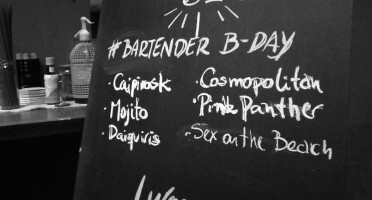 #BARTENDER B-DAY
· Caipirosk
· Mojito
· Daiquiris
· Cosmopolitan
· Pink Panther
· Sex on the Beach